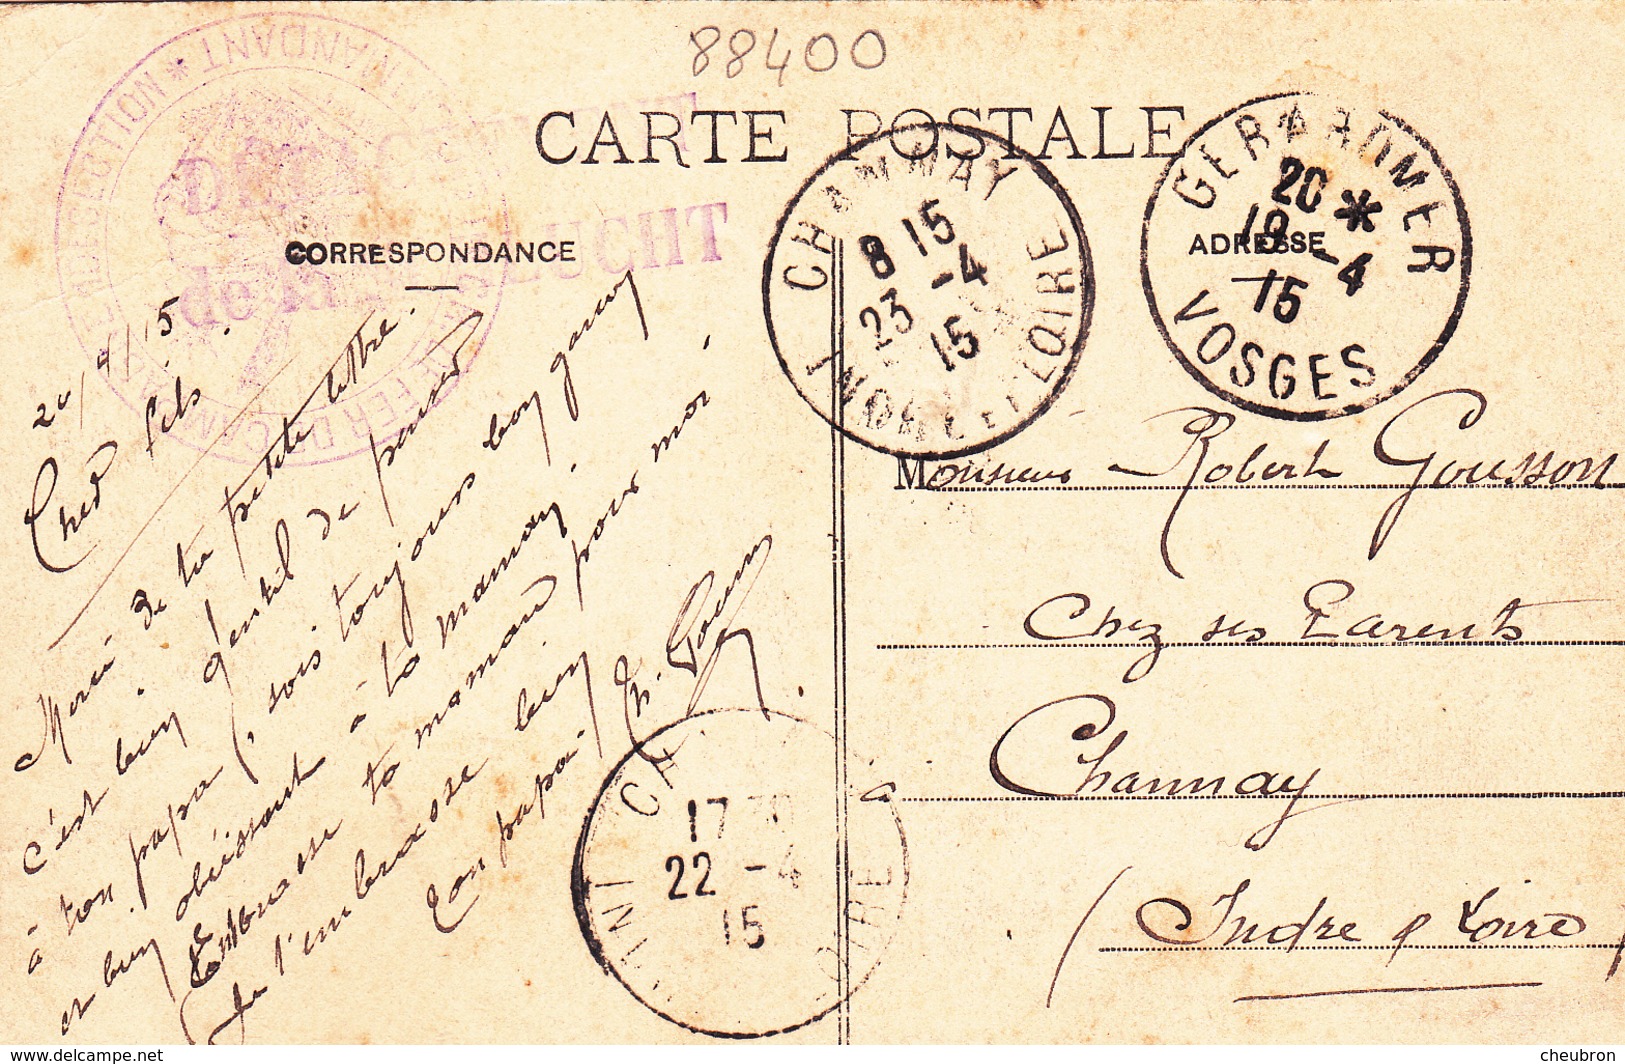 88400
CARTE POSTALE
CORRESPONDANCE
ADRESSE
DÉTACHEMENT
de la SCHLUCHT
COMMANDANT
CHANNAY
8 15
23 -4
15
INDRE-ET-LOIRE
GERARDMER
20 *
19 -4
15
VOSGES
20/4/15
Cher fils.
Merci de ta petite lettre.
c'est bien gentil de penser
à ton papa, sois toujours bon garçon
et bien obéissant à ta maman.
Embrasse ta maman pour moi
Je t'embrasse bien
Ton papa.
17 30
22 -4
15
Monsieur Robert Gousson
Chez ses Parents
à Channay
(Indre & Loire)
www.delcampe.net
cheubron